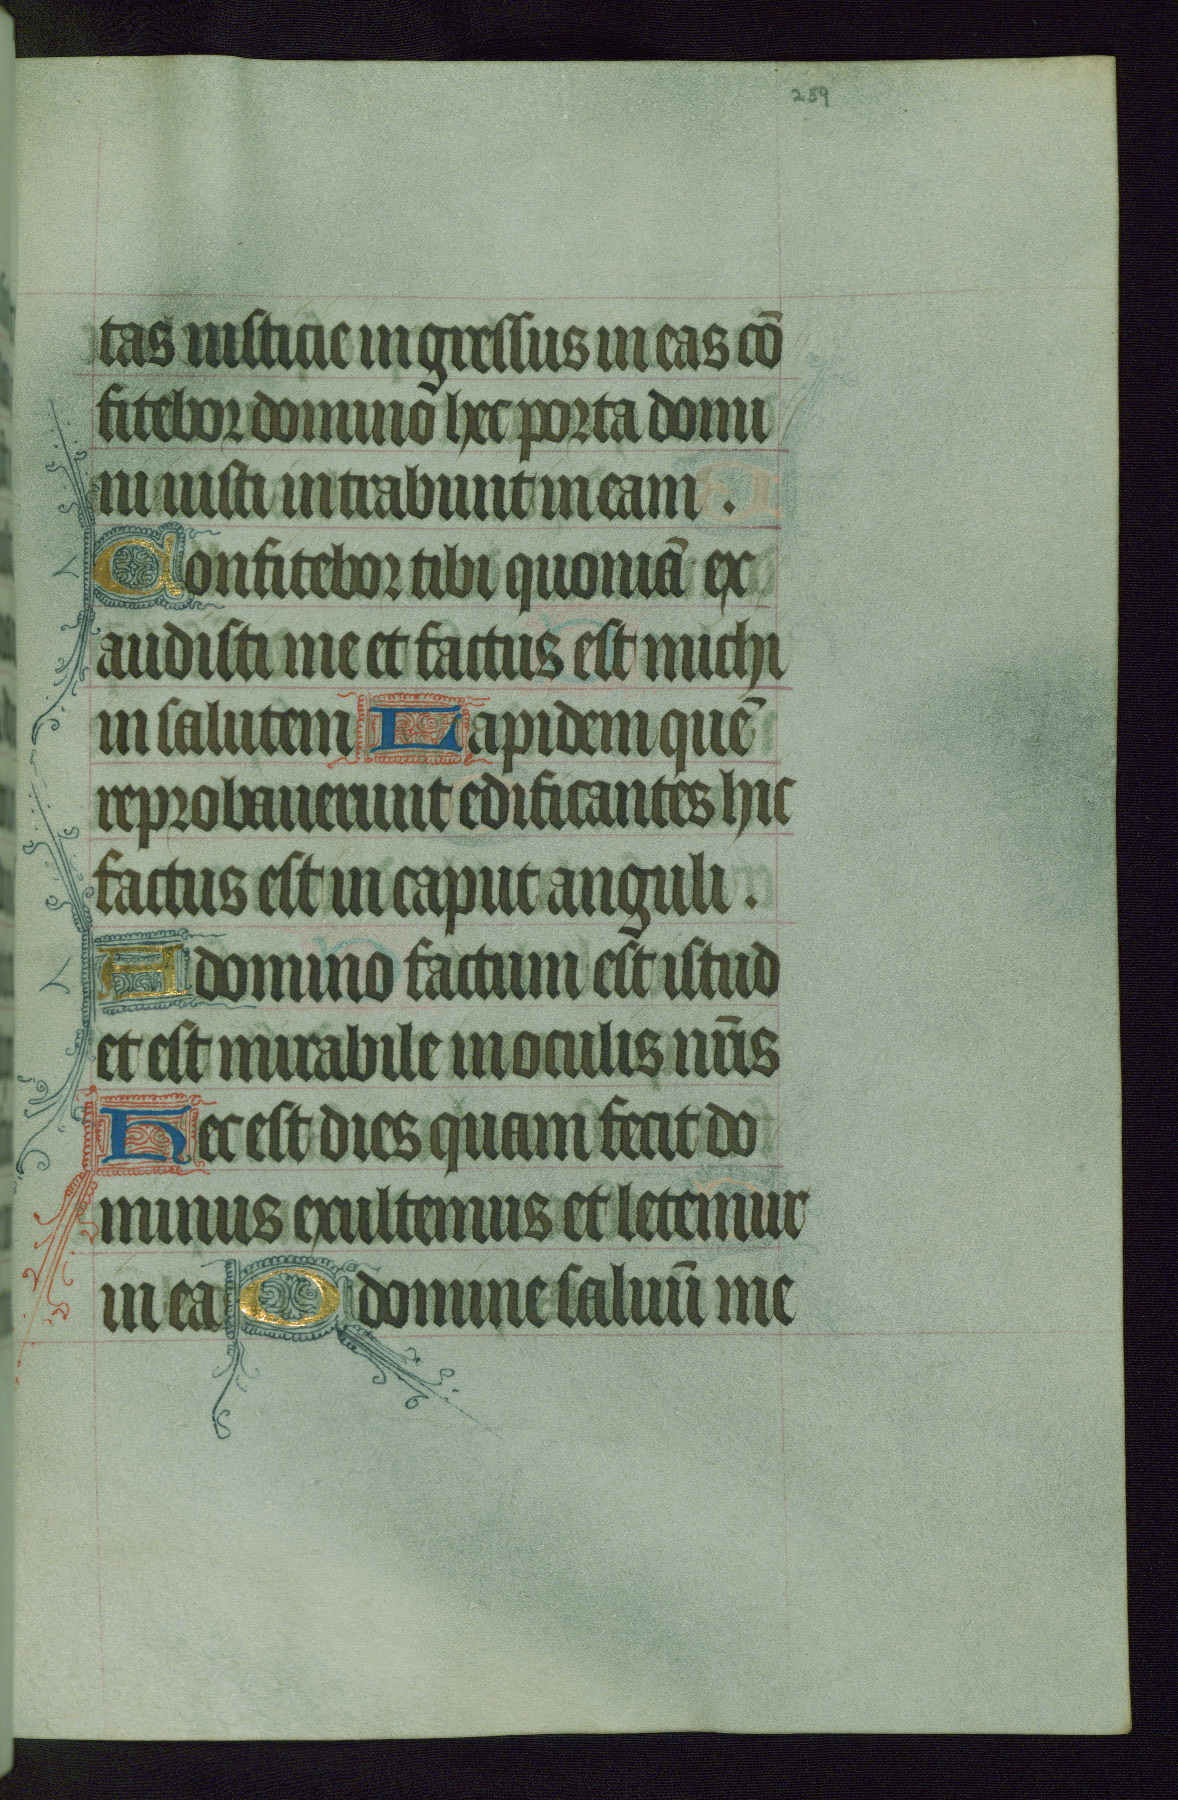 259
tas iusticie ingressus in eas cō
fitebor domino hec porta domi
ni iusti intrabunt in eam .
Confitebor tibi quoniā ex
audisti me et factus est michi
in salutem Lapidem quē
reprobauerunt edificantes hic
factus est in caput anguli .
A domino factum est istud
et est mirabile in oculis nr̄is
Hec est dies quam fecit do
minus exultemus et letemur
in ea O domine saluū me